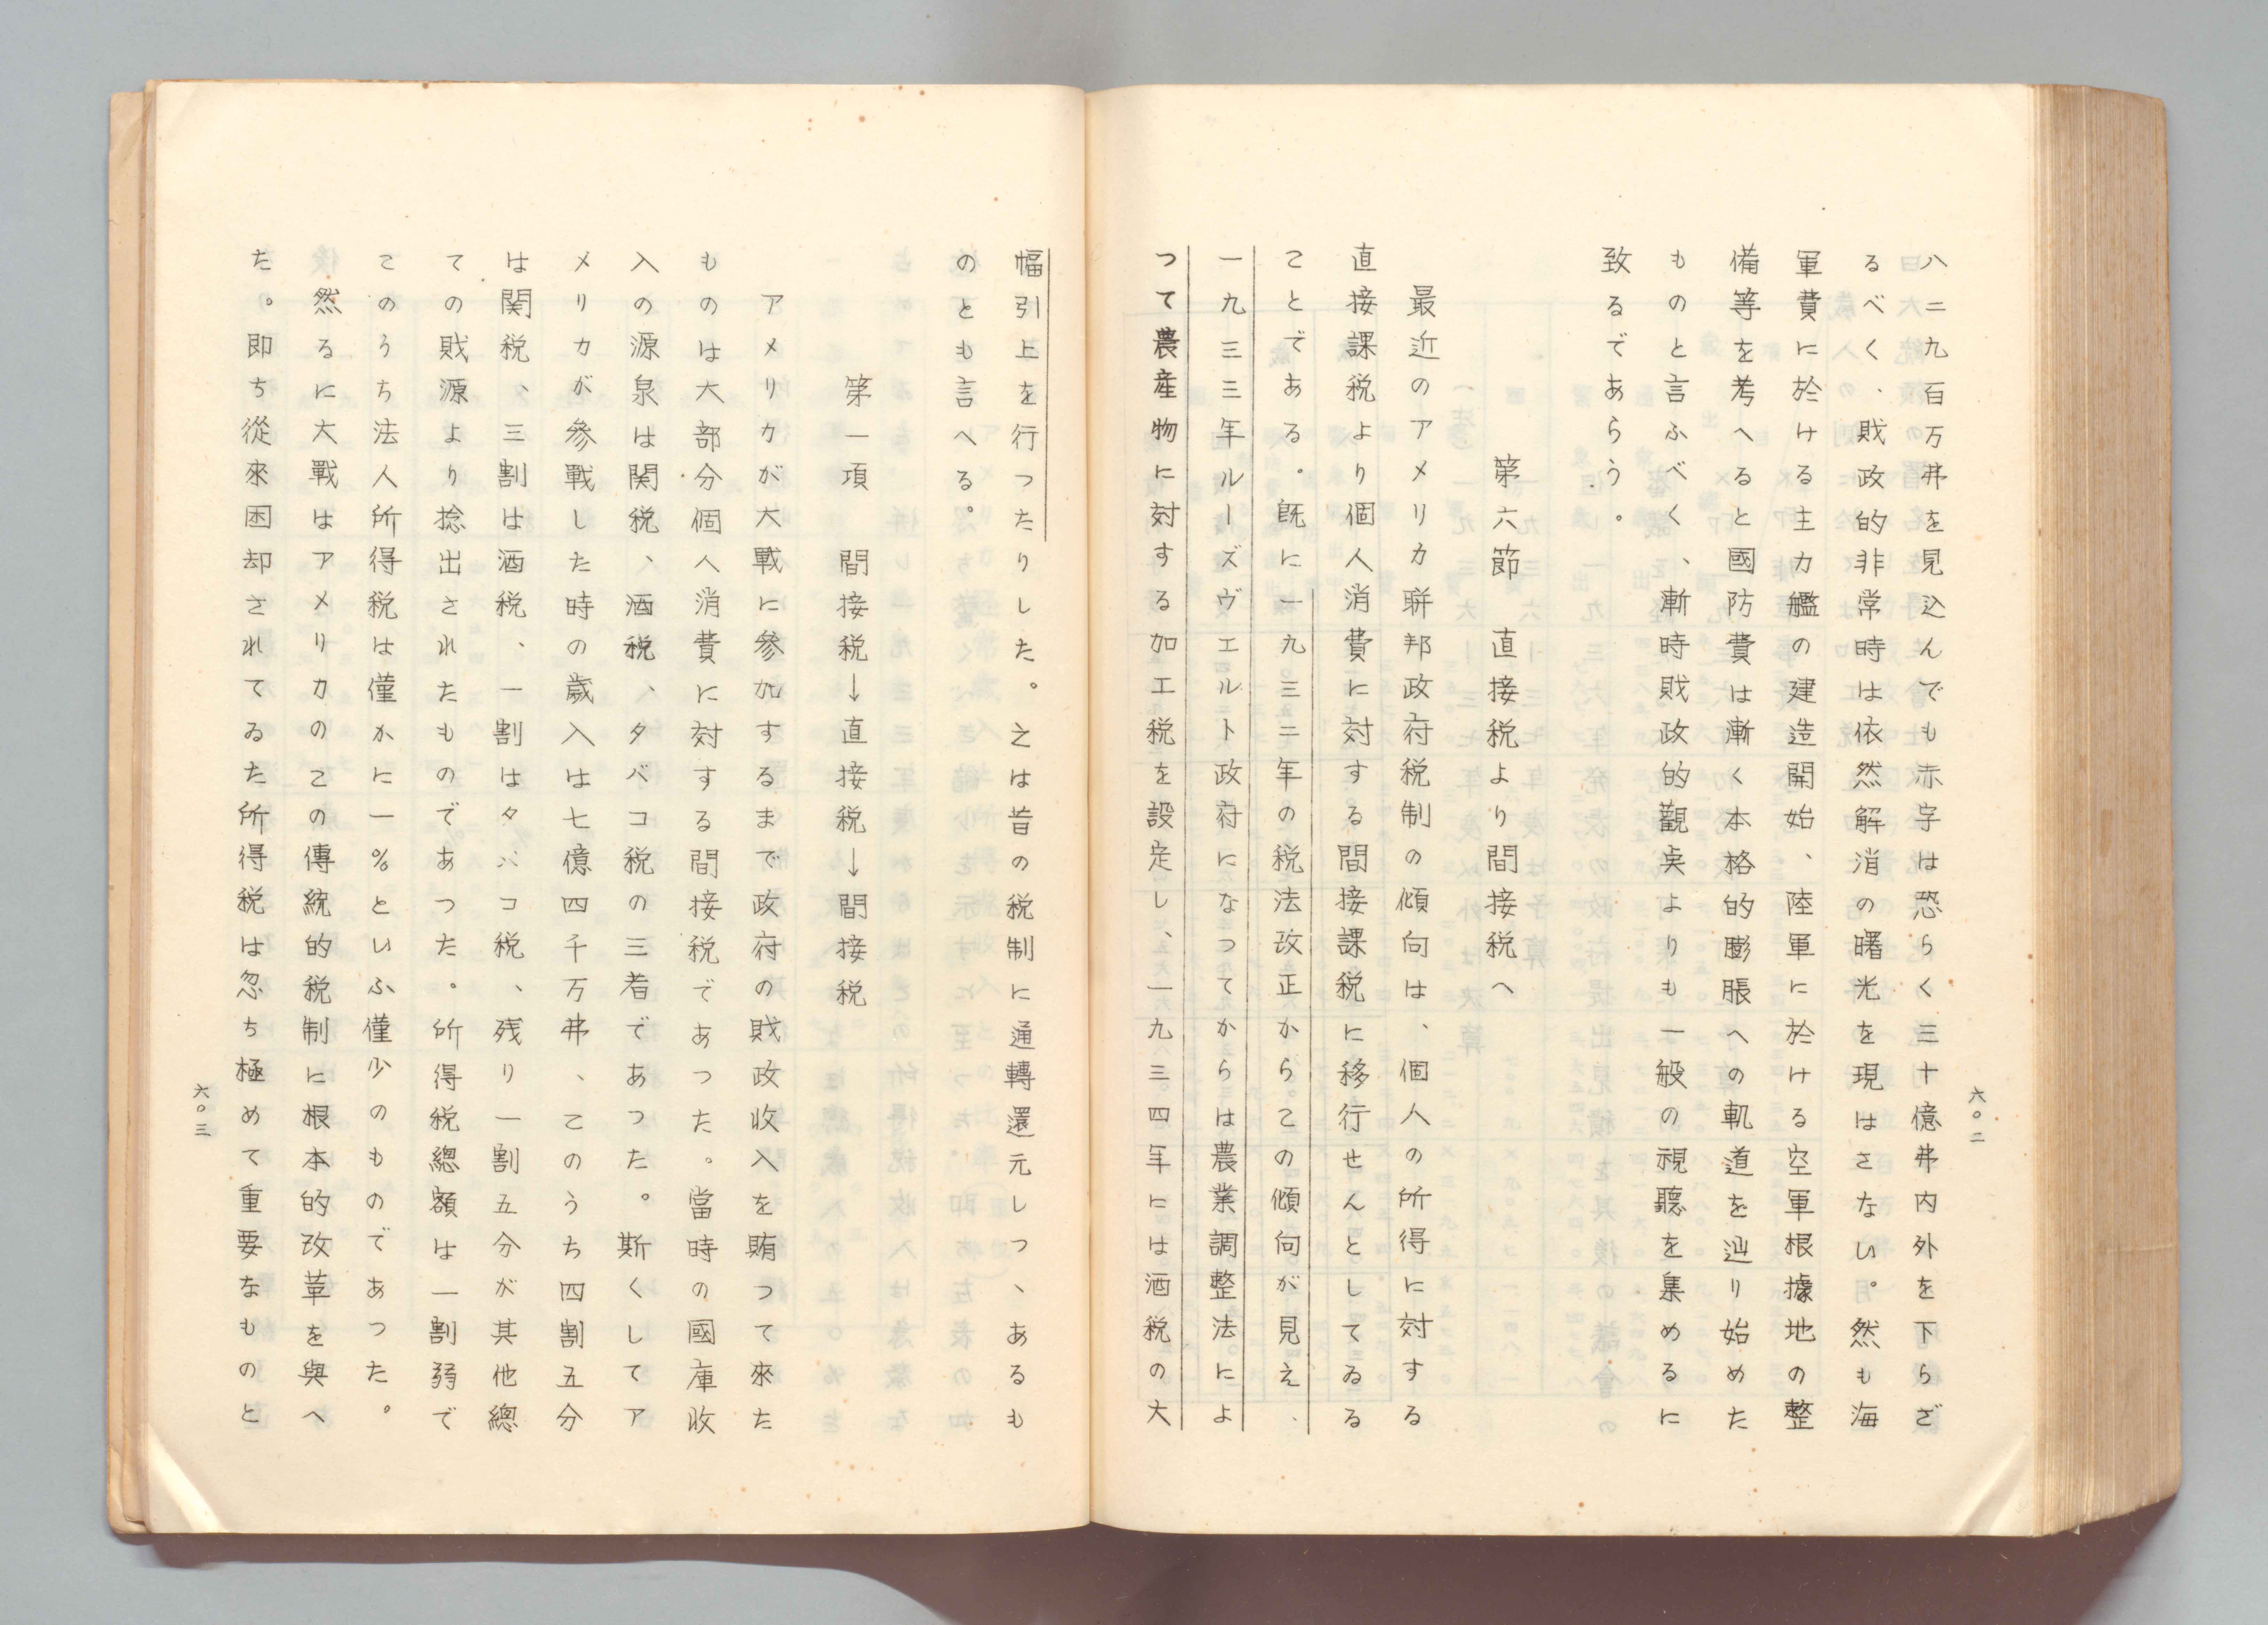 八二九百万弗を見込んでも赤字は恐らく三十億弗内外を下らざ
るべく、財政的非常時は依然解消の曙光を現はさない。然も海
軍費に於ける主力艦の建造開始、陸軍に於ける空軍根據地の整
備等を考へると國防費は漸く本格的膨脹への軌道を辿り始めた
ものと言ふべく、漸時財政的觀奌よりも一般の視聽を集めるに
致るであらう。
第六節　直接税より間接税へ
最近のアメリカ聯邦政府税制の傾向は、個人の所得に対する
直接課税より個人消費に対する間接課税に移行せんとしてゐる
ことである。既に一九三二年の税法改正からこの傾向が見え、
一九三三年ルーズヴエルト政府になつてからは農業調整法によ
つて農産物に対する加工税を設定し、一九三四年には酒税の大
六〇二
幅引上を行つたりした。之は昔の税制に通轉還元しつゝあるも
のとも言へる。
第一項　間接税→直接税→間接税
アメリカが大戰に參加するまで政府の財政收入を賄つて來た
ものは大部分個人消費に対する間接税であつた。當時の國庫收
入の源泉は関税、酒税、タバコ税の三者であつた。斯くしてア
メリカが參戰した時の歳入は七億四千万弗、このうち四割五分
は関税、三割は酒税、一割はタバコ税、残り一割五分が其他總
ての財源より捻出されたものであつた。所得税總額は一割弱で
このうち法人所得税は僅かに一％といふ僅少のものであつた。
然るに大戰はアメリカのこの傳統的税制に根本的改革を與へ
た。即ち從來困却されてゐた所得税は忽ち極めて重要なものと
六〇三